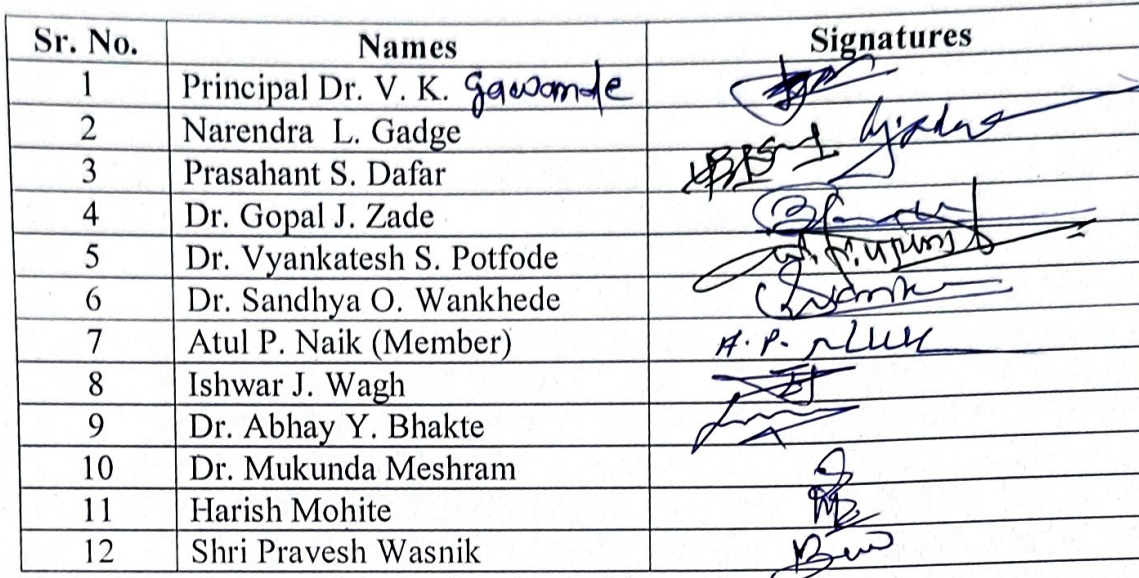 Sr. No. Names Signatures
1 Principal Dr. V. K. Gawande
2 Narendra L. Gadge
3 Prasahant S. Dafar
4 Dr. Gopal J. Zade
5 Dr. Vyankatesh S. Potfode
6 Dr. Sandhya O. Wankhede
7 Atul P. Naik (Member) A. P. Naik
8 Ishwar J. Wagh
9 Dr. Abhay Y. Bhakte
10 Dr. Mukunda Meshram
11 Harish Mohite
12 Shri Pravesh Wasnik